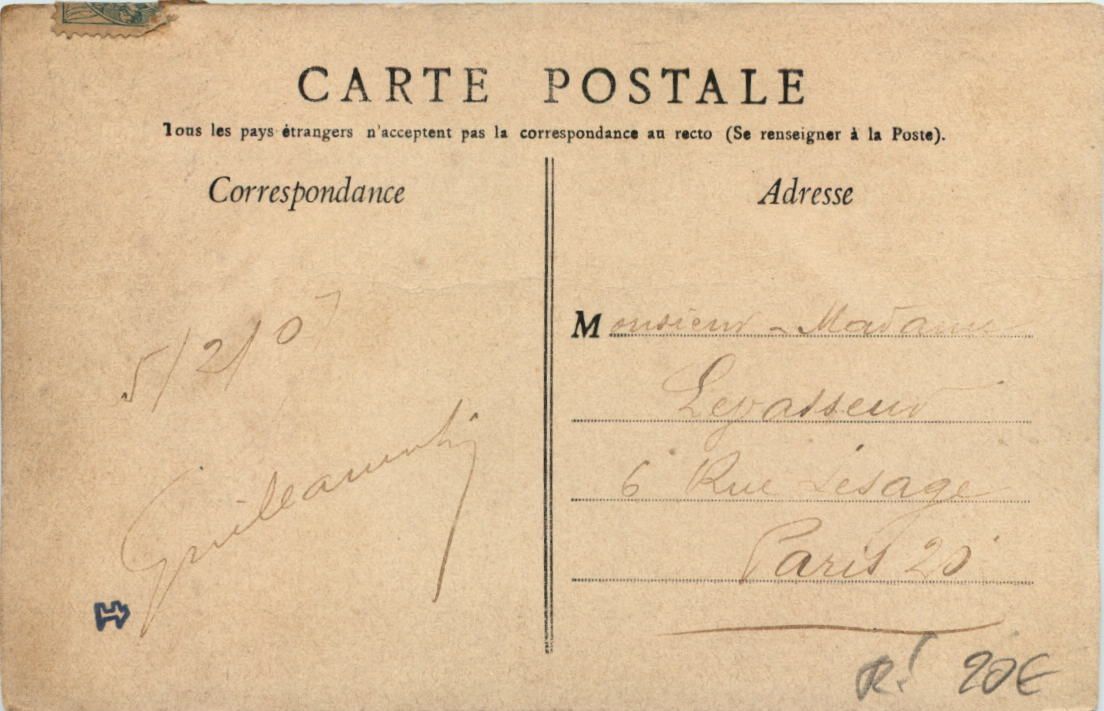 CARTE POSTALE
Tous les pays étrangers n'acceptent pas la correspondance au recto (Se renseigner à la Poste).
Correspondance
Adresse
Monsieur - Madame
Levasseur
6 Rue Lesage
Paris 20
5/2/07
R! 20€